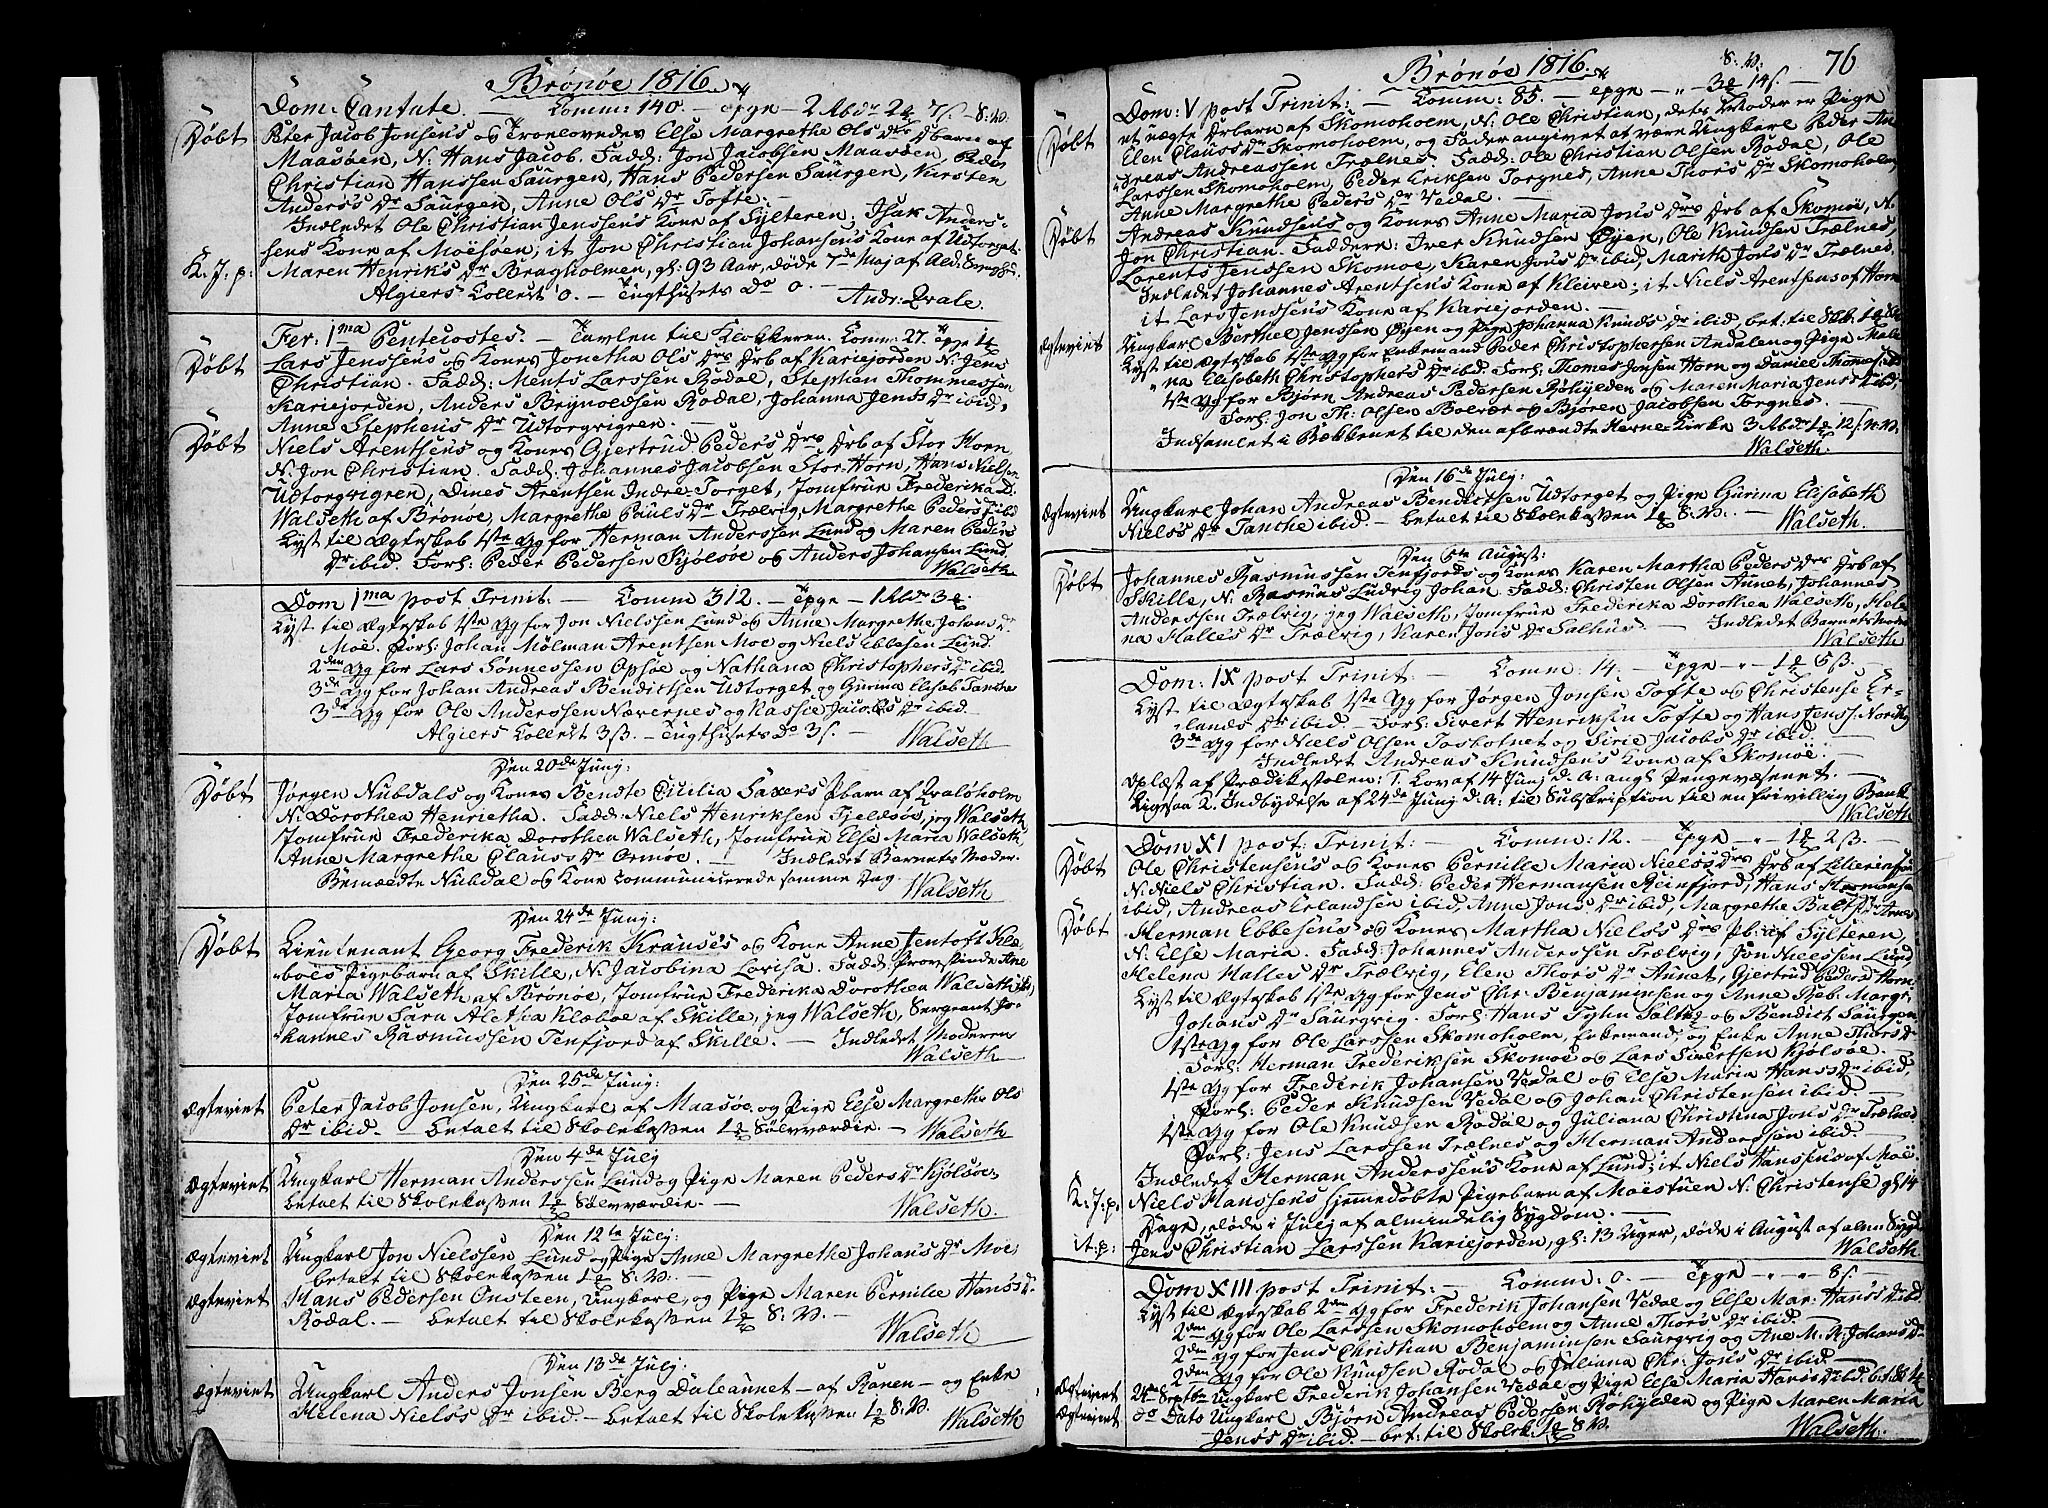 Brönöe 1816.
Dom: Cantate. — Comm: 140. — Epge — 2 Rbdr 2 7 s. 8: W:
Döbt Peter Jacob Jonsens og Troelovedes Else Margrethe Ols Drs Dbarn af
Maasöen, N: Hans Jacob. Fadd: Jon Jacobsen Maasöen, Peder
Christian Hanssen Saurgen, Hans Pedersen Saurgen, Kirsten
Anders's Dr Saurgen, Anne Ols Dr Tofte: —
Indledet Ole Christian Jenssens Kone af Sylteren; Isak Anders-
sens Kone af Moësöen; it Jon Christian Johansen's Kone af Udtorget.
K. J. p: Maren Henriks Dr Bragholmen, gl: 93 Aar, döde 7de Maj af Ald:
Algiers Collect 0. — Tugthusets Do 0. — Andr: Qvale.
Fer: 1ma Pentecostes. — Tavlen til Klokkeren. Comm: 27.
Döbt Lars Jenssens og Kones Jonetha Ols Drs Drb af Kariejorden N: Jens
Christian. Fadd: Ments Larssen Rodal, Stephen Thommessen
Kariejorden, Anders Brynoldsen Rodal, Johanna Jens's Dr ibid,
Anne Stephens Dr Udtorgvigren. —
Döbt Niels Arentsens og Kones Gjertrud Peders Drs Drb af Stor Horn
N: Jon Christian. Fadd: Johannes Jacobsen Stor-Horn, Hans Nielsen
Udtorgvigren, Dines Arentsen Indre-Torget, Jomfrue Frederika D:
Walseth af Brönöe, Margrethe Pauls Dr Trælvig, Margrethe Peders D ibid
Lyst til Ægteskab 1ste Gg for Herman Anderssen Lund og Maren Peders
Dr ibid. Forl: Peder Pedersen Kjölsöe og Anders Johansen Lund.
Walseth
Dom 1ma post Trinit: — Comm 312. — Epge — 1 Rbdr 3
Lyst til Ægteskab 1ste Gg for Jon Nielssen Lund og Anne Margrethe Johans Dr
Moe. Forl: Johan Mölman Arentsen Moe og Niels Ebbesen Lund.
2den Gg for Lars Sönnessen Opsöe og Nathana Christophers Dr ibid
3de Gg for Johan Andreas Bendictsen Udtorget og Gurina Elisab Tanche
3de Gg for Ole Anderssen Nævernes og Kassie Jacobs Dr ibid.
Algiers Collect 3 ß. — Tugthusets do 3 s. — Walseth
Den 20de Junj:
Döbt Jörgen Nubdals og Kones Bendte Cicilia Saxers Pbarn af Qvalöholm
N: Dorothea Henrietha. Fadd: Niels Henriksen Tjeldsöe, jeg Walseth
Jomfrue Frederika Dorothea Walseth, Jomfrue Else Maria Walseth
Anne Margrethe Clauss Dr Ormöe. — Indledet Barnets Moder.
Bemældte Nubdal og Kone communicerede samme Dag.
Walseth
Den 24de Junj:
Döbt Lieutenant Georg Frederik Krauses og Kone Anne Jentoft Klæ-
boës Pigebarn af Skille, N: Jacobina Lovisa. Fadd: Provstinde Ane
Maria Walseth af Brönöe, Jomfrue Frederika Dorothea Walseth ib,
Jomfrue Sara Aletha Klæboe af Skille, jeg Walseth, Sergeant Jo-
hannes Rasmussen Tenfjord af Skille. — Indledet Moderen
Walseth
Den 25de Junj:
Ægteviet Peter Jacob Jonsen, Ungkarl af Maasöe og Pige Else Margrethe Ols
Dr ibid. — betalt til Skolekassen 1 Sölvværdie. — Walseth
Den 4de Julj
Ægteviet Ungkarl Herman Anderssen Lund og Pige Maren Peders Dr Kjölsöe
betalt til Skolekassen 1 Sölvværdie. — Walseth.
Den 12te Julj:
Ægteviet Ungkarl Jon Nielssen Lund og Pige Anne Margrethe Johans Dr Moe,
betalt til Skolekassen 1 S: W. —
Ægteviet Hans Pedersen Onsteen, Ungkarl, og Pige Maren Pernilie Hans's Dr
Rodal. — betalt til Skolekassen 1 S: W. —
Walseth
Den 13de Julj:
Ægteviet Ungkarl Anders Jonsen Berg Daleannet — af Ranen — og Enke
Helena Niels's Dr ibid. — betalt til Skolekassen 1 S: W. Walseth
76
Brönöe 1816.
Dom: V post Trinit: — Comm: 85. — Epge — " — 3 14 s. S: W.
Döbt et uægte Drbarn af Skomoholm, N: Ole Christian, dets Moder er Pige
Elen Clauss Dr Skomoholm, og Fader angivet at være Ungkarl Peder An
dreas Andreassen Trælnes. Fadd: Ole Christian Olsen Rodal, Ole
Larssen Skomoholm, Peder Eriksen Torgnes, Anne Thors Dr Skomoholm,
Anne Margrethe Peders Dr Vedal. —
Döbt Andreas Knudsens og Kones Anne Maria Jons Drs Drb af Skomöe, N.
Jon Christian. Faddere: Iver Knudsen Öyen, Ole Knudsen Trælnes,
Lorents Jenssen Skomoe, Karen Jons Dr ibid, Marith Jons Dr Trælnes.
Indledet Johannes Arentsens Kone af Kleiven; it Niels Arentsens af Horn
it. Lars Jenssens Kone af Kariejorden. —
Ægteviet Ungkarl Berthel Jenssen Öyen og Pige Johanna Knuds Dr ibid, bet: til Skk: 1
Lyst til Ægteskab 1ste Gg for Enkemand Peder Christophersen Andalen og Pige Male
na Elisabeth Christophers Dr ibid. Forl: Thomes Jonsen Horn og Daniel Thomesen ibd.
1ste Gg for Björn Andreas Pedersen Röhylden og Maren Maria Jens's Dr ibid,
Forl: Jon Th: Olsen Bolvær og Björen Jacobsen Torgnes.
Indsamlet i Bækkenet til den afbrændte Herne Kirke 3 Rbdr 1 12 s. N. V.
Walseth.
Den 16de Julj:
Ægteviet Ungkarl Johan Andreas Bendictsen Udtorget og Pige Gurina Elisabeth
Niels's Dr Tanche ibid. — betalt til Skolekassen 1 S: W. — Walseth.
Den 6te August:
Döbt Johannes Rasmussen Tenfjords og Kones Karen Martha Peders Drs Drb af
Skille, N: Rasmus Ludvig Johan. Fadd: Christen Olsen Annet, Johannes
Anderssen Trælvig, jeg Walseth, Jomfrue Frederika Dorothea Walseth, Hele
na Halles Dr Trælvig, Karen Jons Dr Salhus. — Indledet Barnets Moder
Walseth
Dom: IX post Trinit: — Comm: 14. — Epge — " — 1 5 ß.
Lyst til Ægteskab 1ste Gg for Jörgen Jonsen Tofte og Christense Er-
lands Dr ibid — Forl: Sivert Henriksen Tofte og Hans Jenss: Norvik
3de Gg for Niels Olsen Tosbotnet og Sirie Jacobs Dr ibid. —
Indledet Andreas Knudsens Kone af Skomöe. —
Oplæst af Prædikestolen: 1. Lov af 14 Junj d: A: ang: Pengevæsenet. —
Ligesaa 2. Indbydelse af 24de Junj d: A: til Subskription til en frivillig Bank.
Walseth
Dom XI post: Trinit: — Comm: 12. — Epge — " — 1 2 ß. —
Döbt Ole Christensens og Kones Pernille Maria Niels's Drs Drb af
N: Niels Christian. Fadd: Peder Hermansen Reinfjord, Hans Hermansen
ibid, Andreas Erlandsen ibid, Anne Jons Dr ibid, Margrethe Balts Dr
Döbt Herman Ebbesens og Kones Martha Niels's Drs Pb: af Sylteren,
N: Else Maria. Fadd: Johannes Anderssen Trælvig, Jon Nielssen Lund
Helena Halles Dr Trælvig, Elen Thors Dr Annet, Gjertrud Peders D Horn
Lyst til Ægteskab 1ste Gg for Jens Chr: Benjaminsen og Anne Reb: Margr:
Johans Dr Saurgvig. Forl: Hans Tyhn og Bendict Saurgen
1ste Gg for Ole Larssen Skomoholm, Enkemand, og Enke Anne Thors Dr
Forl: Herman Frederiksen Skomoe og Lars Sivertsen Kjölsöe. —
1ste Gg for Frederik Johansen Vedal og Else Maria Hans's Dr ibid,
Forl: Peder Knudsen Vedal og Johan Christensen ibid. —
1ste Gg for Ole Knudsen Rodal og Juliana Christina Jons Dr Trælnes
Forl: Jens Larssen Trælnes og Herman Anderssen ibid. —
Indledet Herman Anderssens Kone af Lund; it Niels Hanssens af Moë-
K. J. p: Niels Hanssens hjemmedöbte Pigebarn af Moëstuen N: Christense gl: 14
Dage, döde i Julj af almindelig Sygdom. —
it: p: Jens Christian Larssen Kariejorden, gl: 13 Uger, döde i August af alm Sygd.
Walseth
Dom XIII post Trinit: — Comm: 0. — Epge — " — " — 8 s.
Lyst til Ægteskab 2den Gg for Frederik Johansen Vedal og Else Mar: Hans's D ibd.
2den Gg for Ole Larssen Skomoholm og Anne Thors Dr ibid. —
2den Gg for Jens Christian Benjaminsen Saurgvig og Ane M. R: Johans Dr
2den Gg for Ole Knudsen Rodal og Juliana Chr: Jons Dr ibid —
Ægteviet 24de Septbr Ungkarl Frederik Johansen Vedal og Pige Else Maria Hans's D ibd.
Ægteviet do Dato Ungkarl Björn Andreas Pedersen Röhylden og Pige Maren Maria
Jens's Dr ibid. — bet: til Skolek: 1 S W. Walseth.